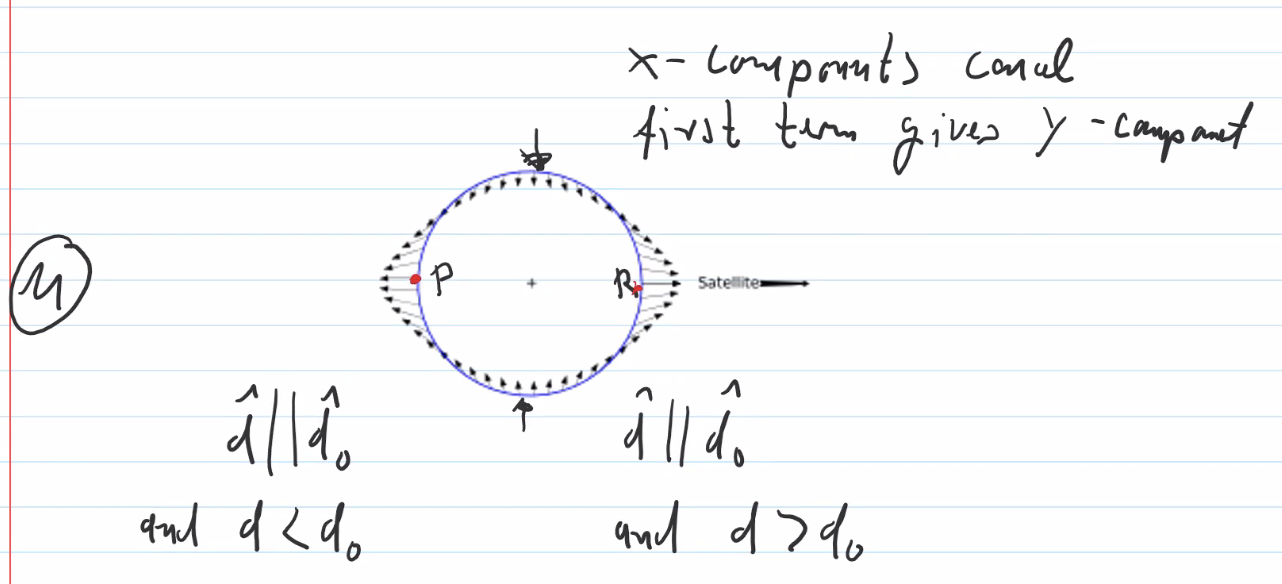 x-components cancel
first term gives y-componant
P
R
Satellite
M
d̂ || d̂₀
d̂ || d̂₀
and d < d₀
and d > d₀